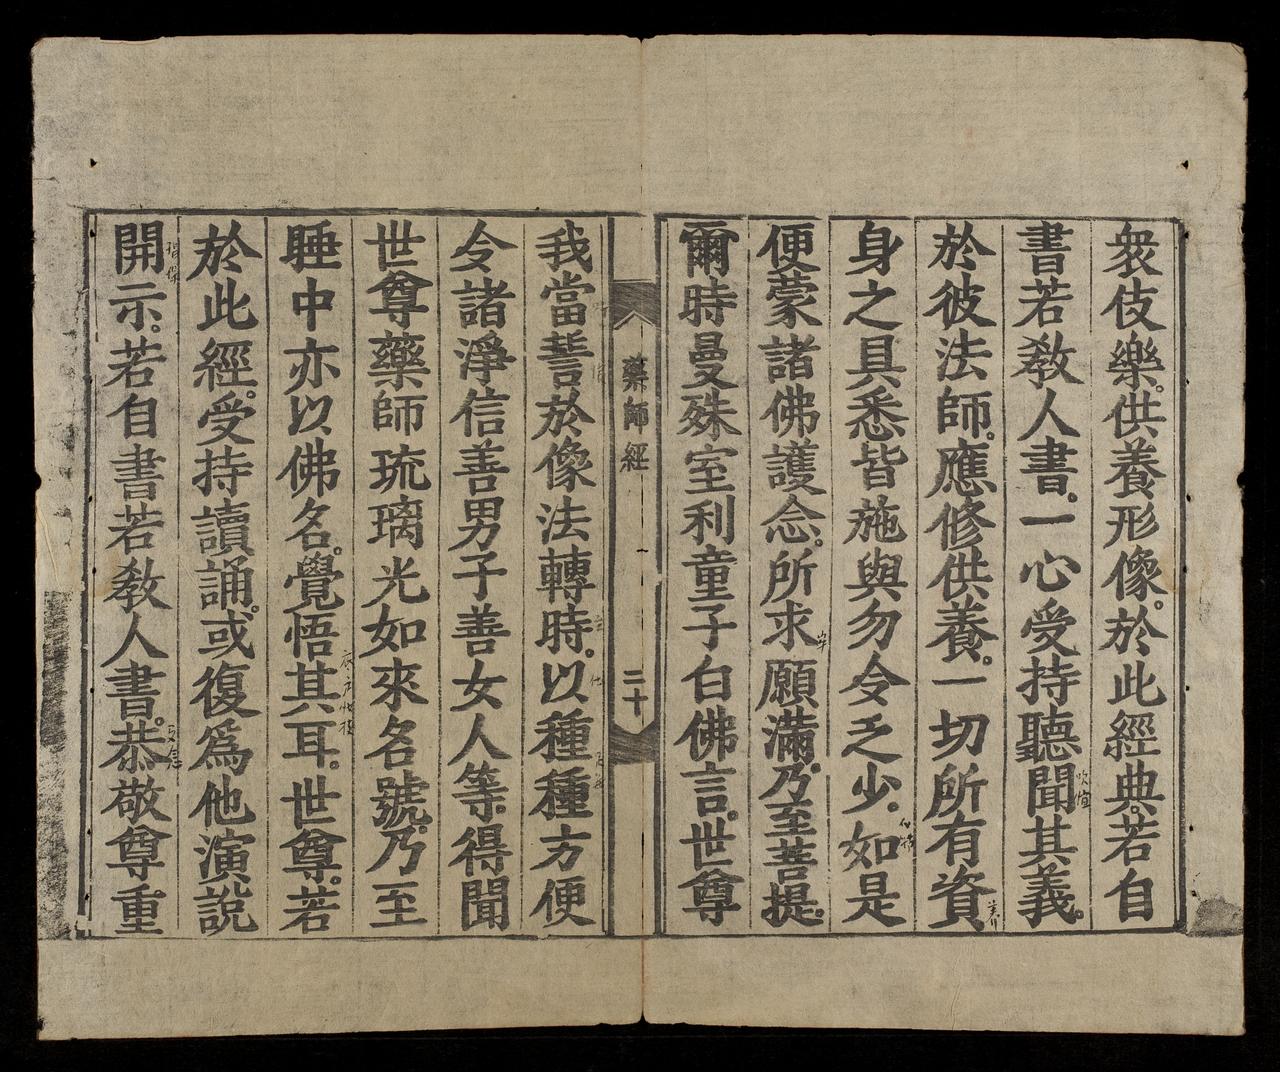 衆伎樂。供養形像。於此經典。若自
書若敎人書。一心受持聽聞其義。
於彼法師。應修供養。一切所有資
身之具悉皆施與勿令乏少。如是
便蒙諸佛護念。所求願滿。乃至菩提。
爾時曼殊室利童子白佛言。世尊
藥師經
二十
我當誓於像法轉時。以種種方便
令諸淨信善男子善女人等。得聞
世尊藥師琉璃光如來名號。乃至
睡中亦以佛名。覺悟其耳。世尊。若
於此經。受持讀誦。或復爲他演說
開示。若自書若敎人書。恭敬尊重